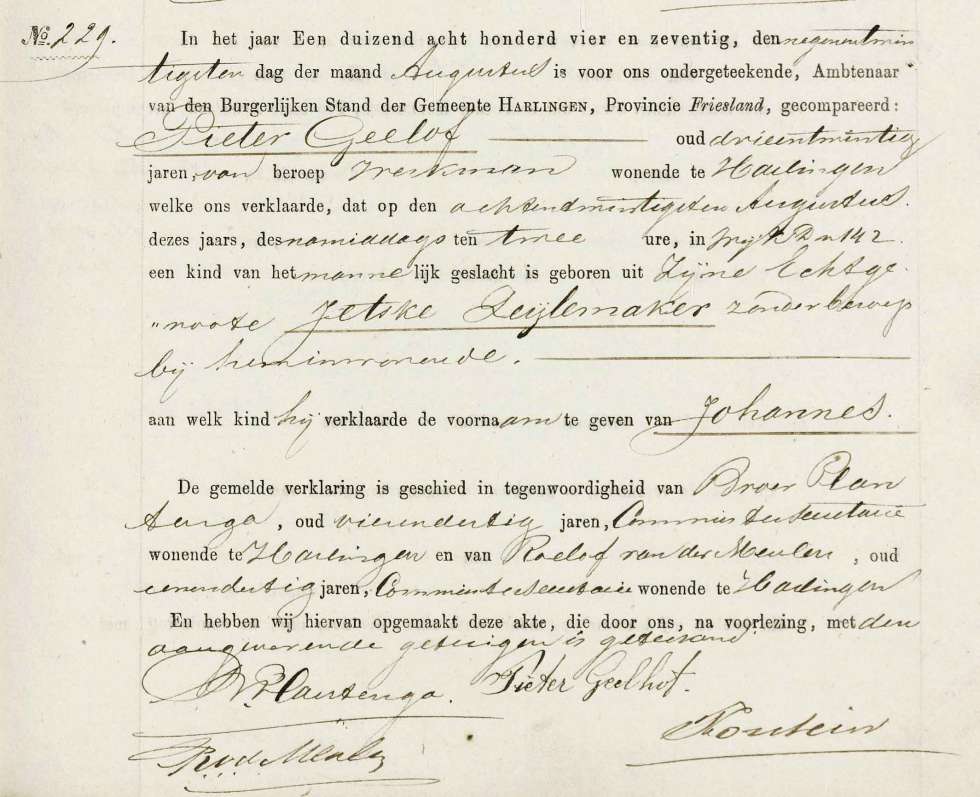 No. 229.
In het jaar Een duizend acht honderd vier en zeventig, den negenentwin
tigsten dag der maand Augustus is voor ons ondergeteekende, Ambtenaar
van den Burgerlijken Stand der Gemeente HARLINGEN, Provincie Friesland, gecompareerd:
Pieter Geelof oud drieentwintig
jaren, van beroep werkman wonende te Harlingen
welke ons verklaarde, dat op den achtentwintigsten Augustus
dezes jaars, des namiddags ten twee ure, in wijk D n 142.
een kind van het mannelijk geslacht is geboren uit Zijne Echtge-
"noote Jetske Zeijlemaker zonder beroep
bij hem inwonende.
aan welk kind hij verklaarde de voornaam te geven van Johannes.
De gemelde verklaring is geschied in tegenwoordigheid van Broer Plan
tenga, oud vierendertig jaren, Commies ter secretarie
wonende te Harlingen en van Roelof van der Meulen, oud
eenendertig jaren, Commies ter secretarie wonende te Harlingen
En hebben wij hiervan opgemaakt deze akte, die door ons, na voorlezing, met den
aangevende getuigen is geteekend.
Plantenga. Pieter Geelhof.
Fontein
R vd Meulen